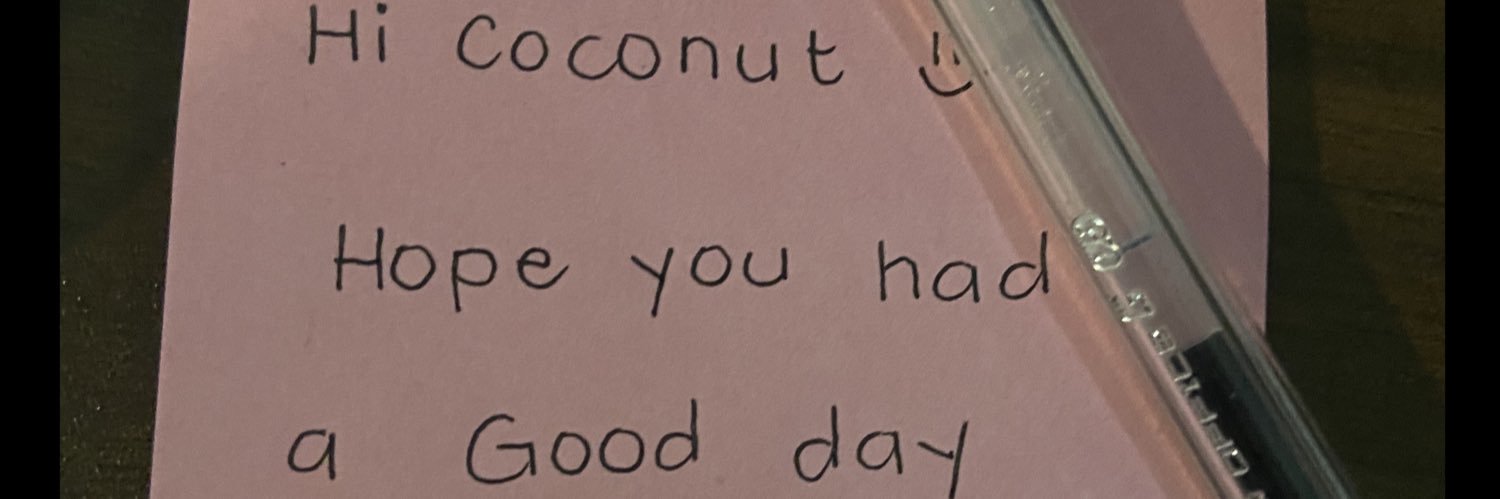 Hi Coconut
Hope you had
a Good day